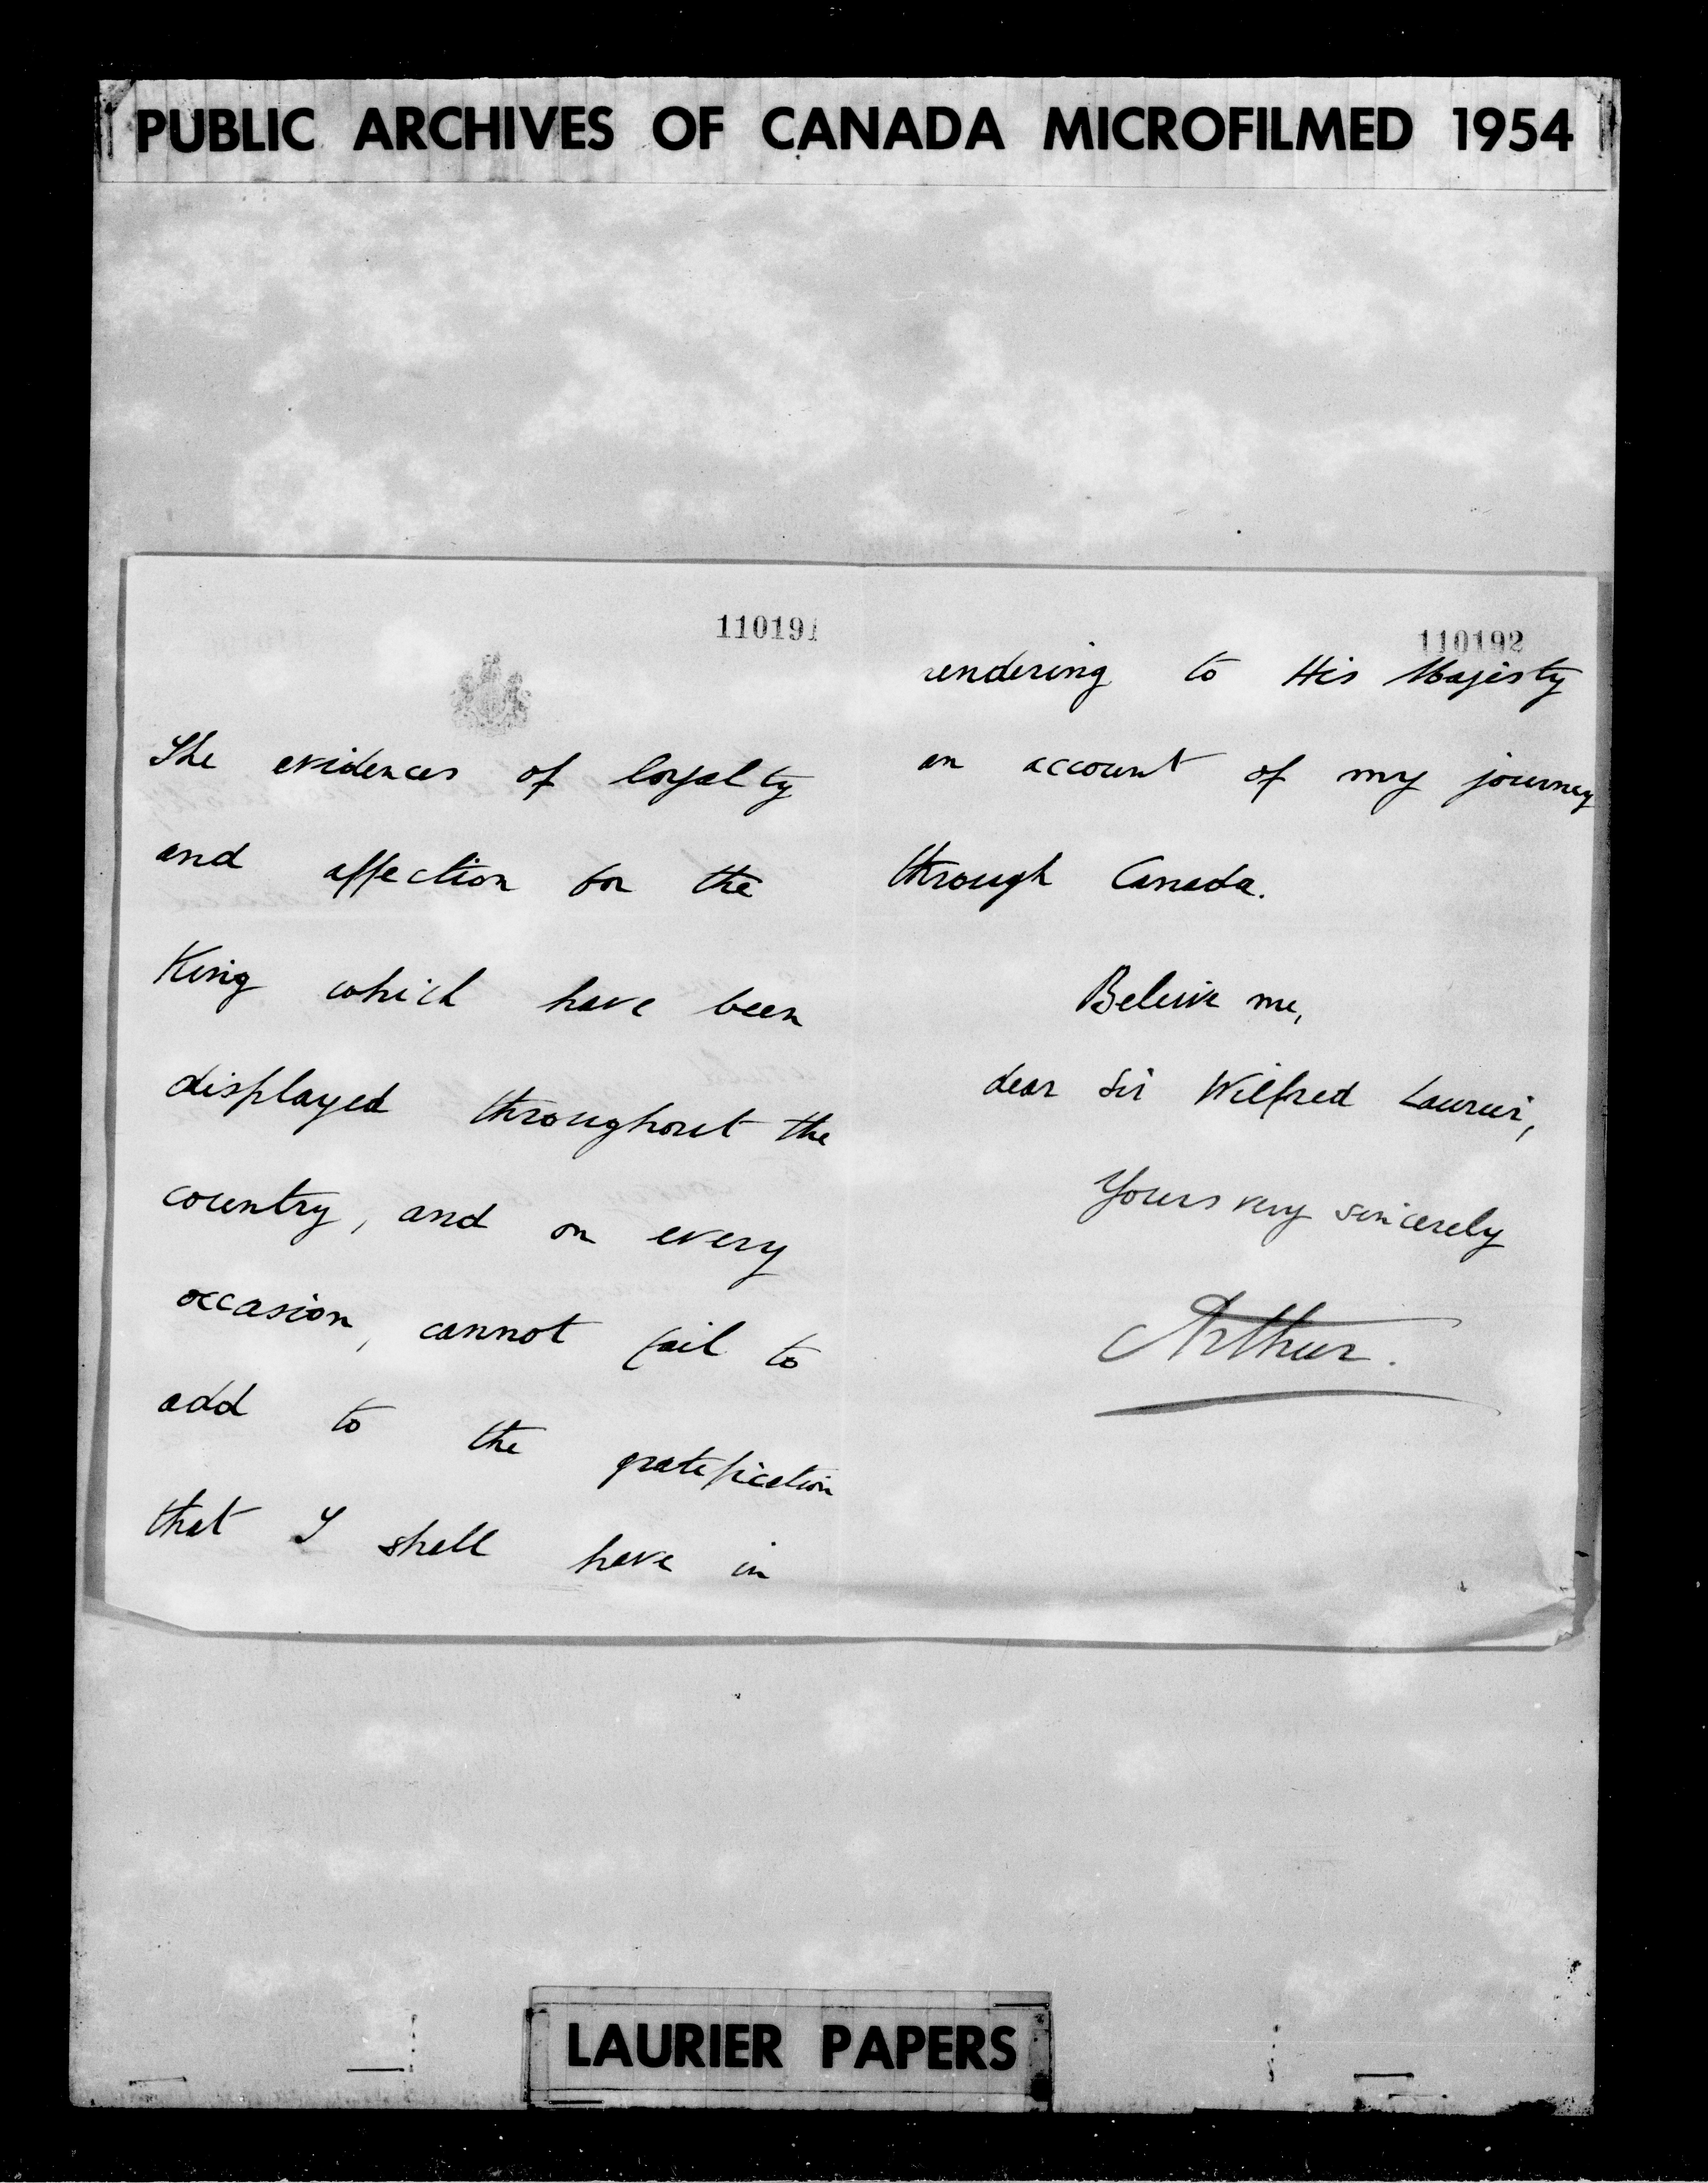 PUBLIC ARCHIVES OF CANADA MICROFILMED 1954
110191
The evidences of loyalty
and affection for the
King which have been
displayed throughout the
country, and on every
occasion, cannot fail to
add to the gratification
that I shall have in
110192
rendering to His Majesty
an account of my journey
through Canada.
Believe me,
dear Sir Wilfred Laurier,
Yours very sincerely
Arthur.
LAURIER PAPERS